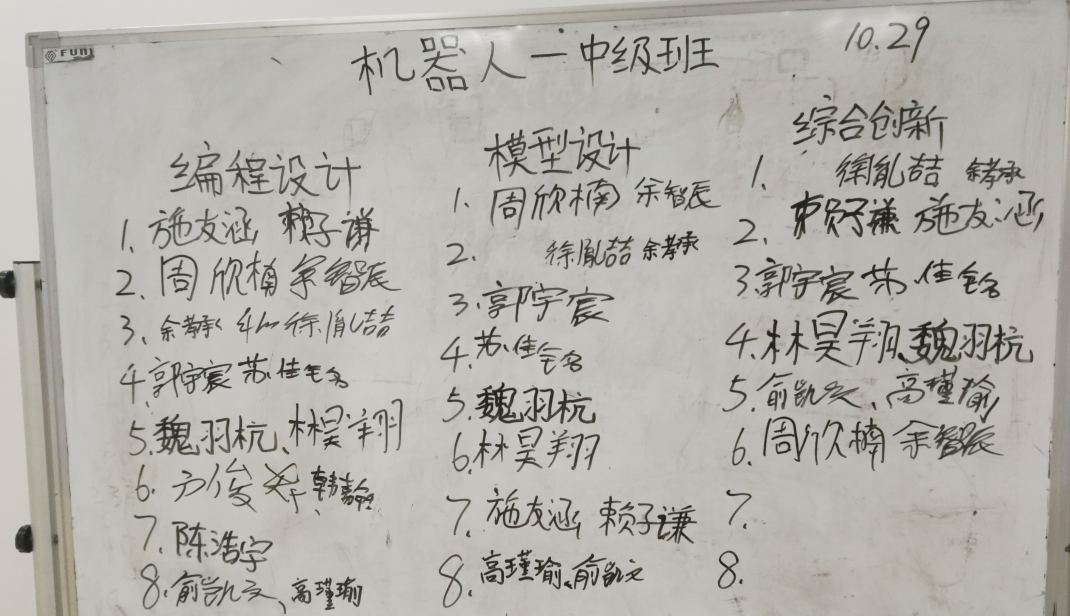 FUNJ
机器人一中级班
10.29
编程设计
1. 施友涵 赖子谦
2. 周欣楠 余智辰
3. 余孝承 徐胤喆
4. 郭宇宸 苏佳铭
5. 魏羽杭、林昊翔
6. 方俊
7. 陈浩宇
8. 俞凯文、高瑾瑜
模型设计
1. 周欣楠 余智辰
2. 徐胤喆 余孝承
3. 郭宇宸
4. 苏佳铭
5. 魏羽杭
6. 林昊翔
7. 施友涵 赖子谦
8. 高瑾瑜、俞凯文
综合创新
1. 徐胤喆 余孝承
2. 赖子谦 施友涵
3. 郭宇宸 苏佳铭
4. 林昊翔、魏羽杭
5. 俞凯文、高瑾瑜
6. 周欣楠 余智辰
7.
8.